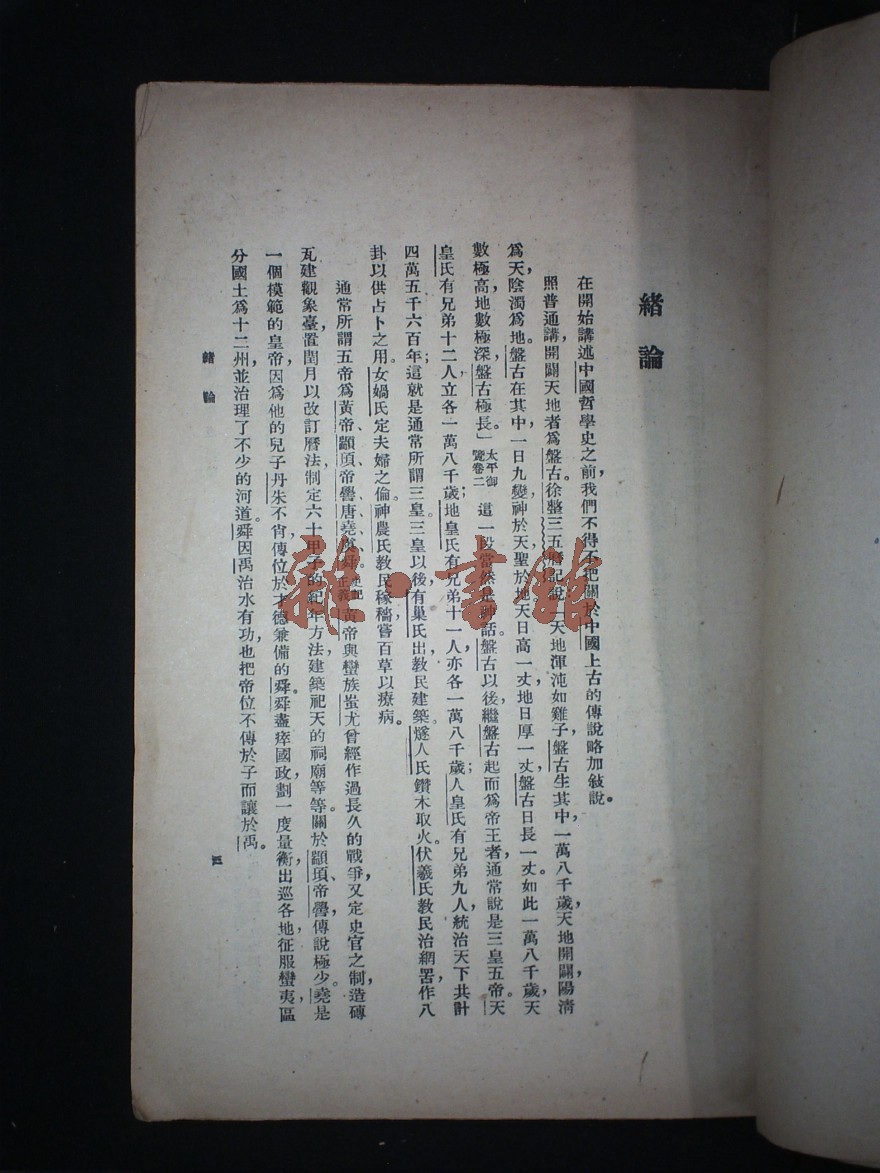 緒論
在開始講述中國哲學史之前，我們不得不把關於中國上古的傳說略加敍說。
照普通講，開闢天地者爲盤古。徐整三五曆記說：「天地渾沌如雞子，盤古生其中，一萬八千歲，天地開闢，陽淸
爲天，陰濁爲地。盤古在其中，一日九變，神於天，聖於地。天日高一丈，地日厚一丈，盤古日長一丈。如此一萬八千歲，天
數極高，地數極深，盤古極長。」太平御覽卷二 這一段當然是神話。盤古以後，繼盤古起而爲帝王者，通常說是三皇五帝。天
皇氏有兄弟十二人，立各一萬八千歲；地皇氏有兄弟十一人，亦各一萬八千歲；人皇氏有兄弟九人，統治天下共計
四萬五千六百年；這就是通常所謂三皇。三皇以後，有巢氏出，教民建築。燧人氏鑽木取火。伏羲氏教民治網罟，作八
卦以供占卜之用。女媧氏定夫婦之倫。神農氏教民稼穡，嘗百草以療病。
通常所謂五帝爲黃帝、顓頊、帝嚳、唐堯、虞舜 史記正義 黃帝與蠻族蚩尤曾經作過長久的戰爭，又定史官之制，造磚
瓦，建觀象臺，置閏月以改訂曆法，制定六十甲子的紀年方法，建築祀天的祠廟等等。關於顓頊、帝嚳，傳說極少。堯是
一個模範的皇帝，因爲他的兒子丹朱不肖，傳位於才德兼備的舜。舜盡瘁國政，劃一度量衡，出巡各地，征服蠻夷，區
分國土爲十二州，並治理了不少的河道。舜因禹治水有功，也把帝位不傳於子而讓於禹。
緒論
五
雜·書館